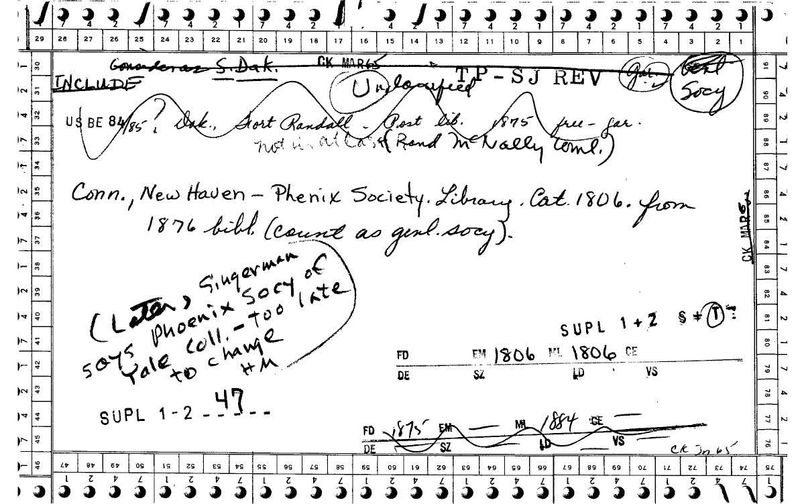 29 28 27 26 25 24 23 22 21 20 19 18 17 16 15 14 13 12 11 10 9 8 7 6 5 4 3 2 1
S. Dak. CK MAR 65
INCLUDE Unclassified TP-SJ REV Gar. Genl Socy
US BE 84/85? Dak., Fort Randall - Post lib. 1875 free - gar.
not in atlas (Rand McNally Coml.)
Conn., New Haven - Phenix Society. Library. Cat. 1806. from
1876 bibl. (count as genl. socy).
CK MAR 65
(Later, Singerman
says Phoenix Socy of
Yale Coll. - too late
to change
HM
SUPL 1+2 § ≠ T
FD EM 1806 ML 1806 CE
DE SZ LD VS
SUPL 1-2 _ _47_ _ _
FD 1875 EM — ML 1884 CE —
DE SZ LD VS —
CK Jn 65
30 31 32 33 34 35 36 37 38 39 40 41 42 43 44 45 46
91 90 89 88 87 86 85 84 83 82 81 80 79 78 77 76 75
47 48 49 50 51 52 53 54 55 56 57 58 59 60 61 62 63 64 65 66 67 68 69 70 71 72 73 74